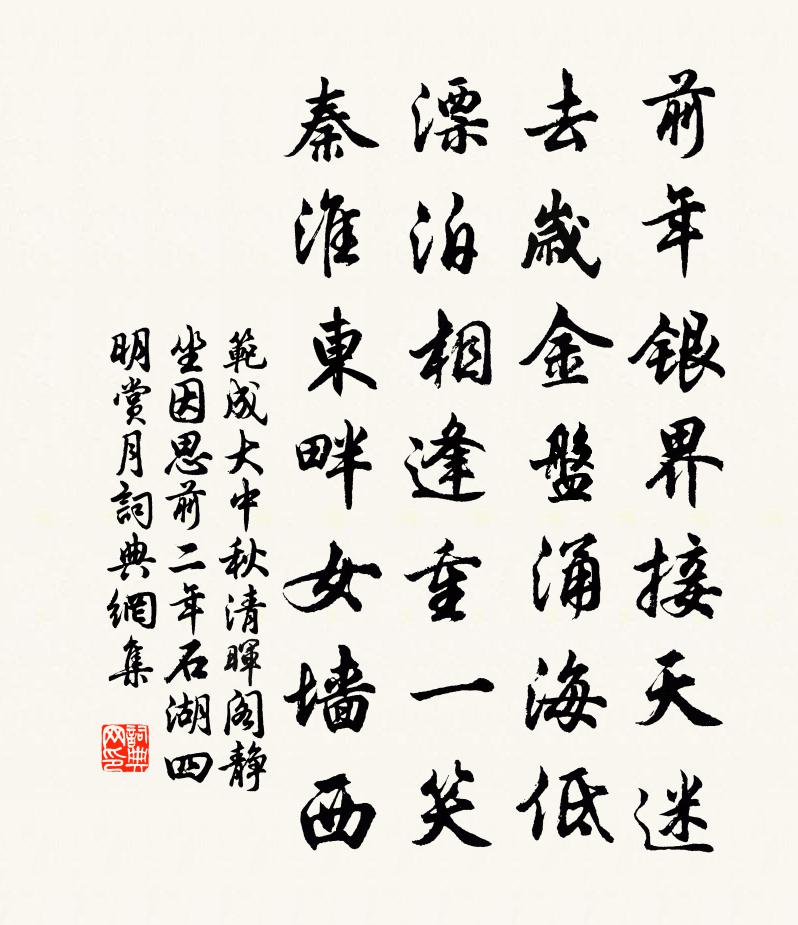 前年銀界接天迷
去歲金盤涌海低
漂泊相逢重一笑
秦淮東畔女墙西
範成大中秋清暉阁静
坐因思前二年石湖四
明賞月詞典網集
詞典网印